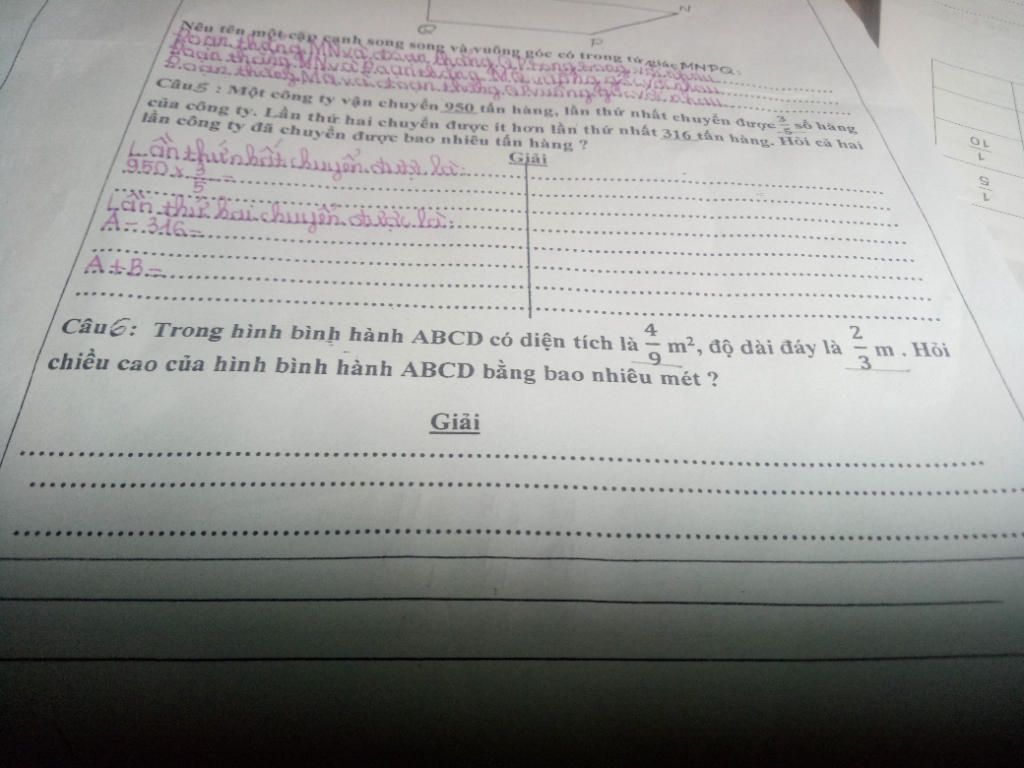 N
Q
P
Nêu tên một cặp cạnh song song và vuông góc có trong tứ giác MNPQ:
Đoạn thẳng MN và đoạn thẳng song song
Đoạn thẳng MN và Đoạn thẳng MQ vuông góc với nhau
Đoạn thẳng MQ và đoạn thẳng QP vuông góc với nhau
Câu 5 : Một công ty vận chuyển 950 tấn hàng, lần thứ nhất chuyển được 3/5 số hàng
của công ty. Lần thứ hai chuyển được ít hơn lần thứ nhất 316 tấn hàng. Hỏi cả hai
lần công ty đã chuyển được bao nhiêu tấn hàng ?
Giải
Lần thứ nhất chuyển được là:
950 x 3/5 =
Lần thứ hai chuyển được là:
A - 316 =
A + B =
Câu 6: Trong hình bình hành ABCD có diện tích là 4/9 m², độ dài đáy là 2/3 m . Hỏi
chiều cao của hình bình hành ABCD bằng bao nhiêu mét ?
Giải
1/10
1/5